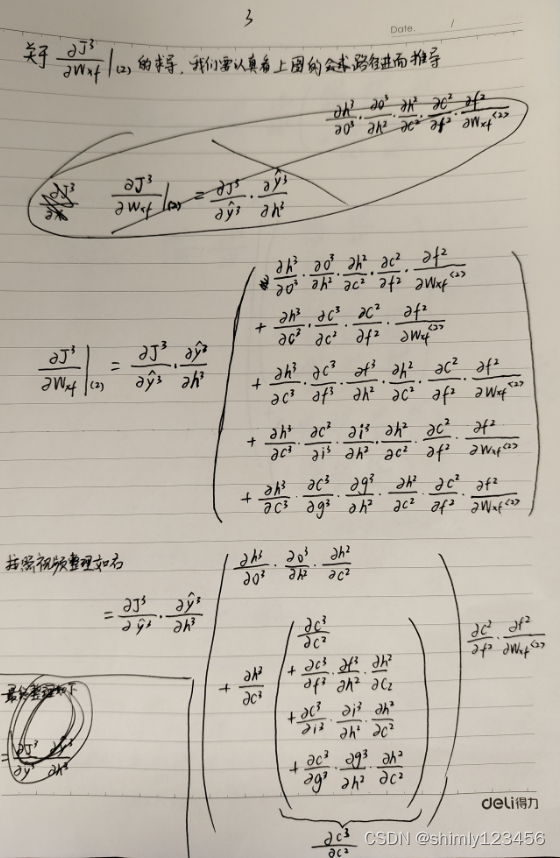 3
Date. /
关于 ∂J³/∂Wxf |(2) 的求导, 我们要认真看上图的公式路径进而推导
∂h³/∂o³ · ∂o³/∂h² · ∂h²/∂c² · ∂c²/∂f² · ∂f²/∂Wxf⁽²⁾
∂J³/∂Wxf |(2) = ∂J³/∂ŷ³ · ∂ŷ³/∂h³
∂h³/∂o³ · ∂o³/∂h² · ∂h²/∂c² · ∂c²/∂f² · ∂f²/∂Wxf⁽²⁾
+ ∂h³/∂c³ · ∂c³/∂c² · ∂c²/∂f² · ∂f²/∂Wxf⁽²⁾
∂J³/∂Wxf |(2) = ∂J³/∂ŷ³ · ∂ŷ³/∂h³
+ ∂h³/∂c³ · ∂c³/∂f³ · ∂f³/∂h² · ∂h²/∂c² · ∂c²/∂f² · ∂f²/∂Wxf⁽²⁾
+ ∂h³/∂c³ · ∂c²/∂i³ · ∂i³/∂h² · ∂h²/∂c² · ∂c²/∂f² · ∂f²/∂Wxf⁽²⁾
+ ∂h³/∂c³ · ∂c³/∂g³ · ∂g³/∂h² · ∂h²/∂c² · ∂c²/∂f² · ∂f²/∂Wxf⁽²⁾
按照视频整理如右
∂h³/∂o³ · ∂o³/∂h² · ∂h²/∂c²
= ∂J³/∂ŷ³ · ∂ŷ³/∂h³
∂c²/∂f² · ∂f²/∂Wxf⁽²⁾
+ ∂h³/∂c³
∂c³/∂c²
+ ∂c³/∂f³ · ∂f³/∂h² · ∂h²/∂c₂
+ ∂c³/∂i² · ∂i³/∂h² · ∂h²/∂c²
+ ∂c³/∂g³ · ∂g³/∂h² · ∂h²/∂c²
∂c³/∂c²
最终整理如下
= ∂J³/∂ŷ³ ∂ŷ³/∂h³
deli得力
CSDN @shimly123456